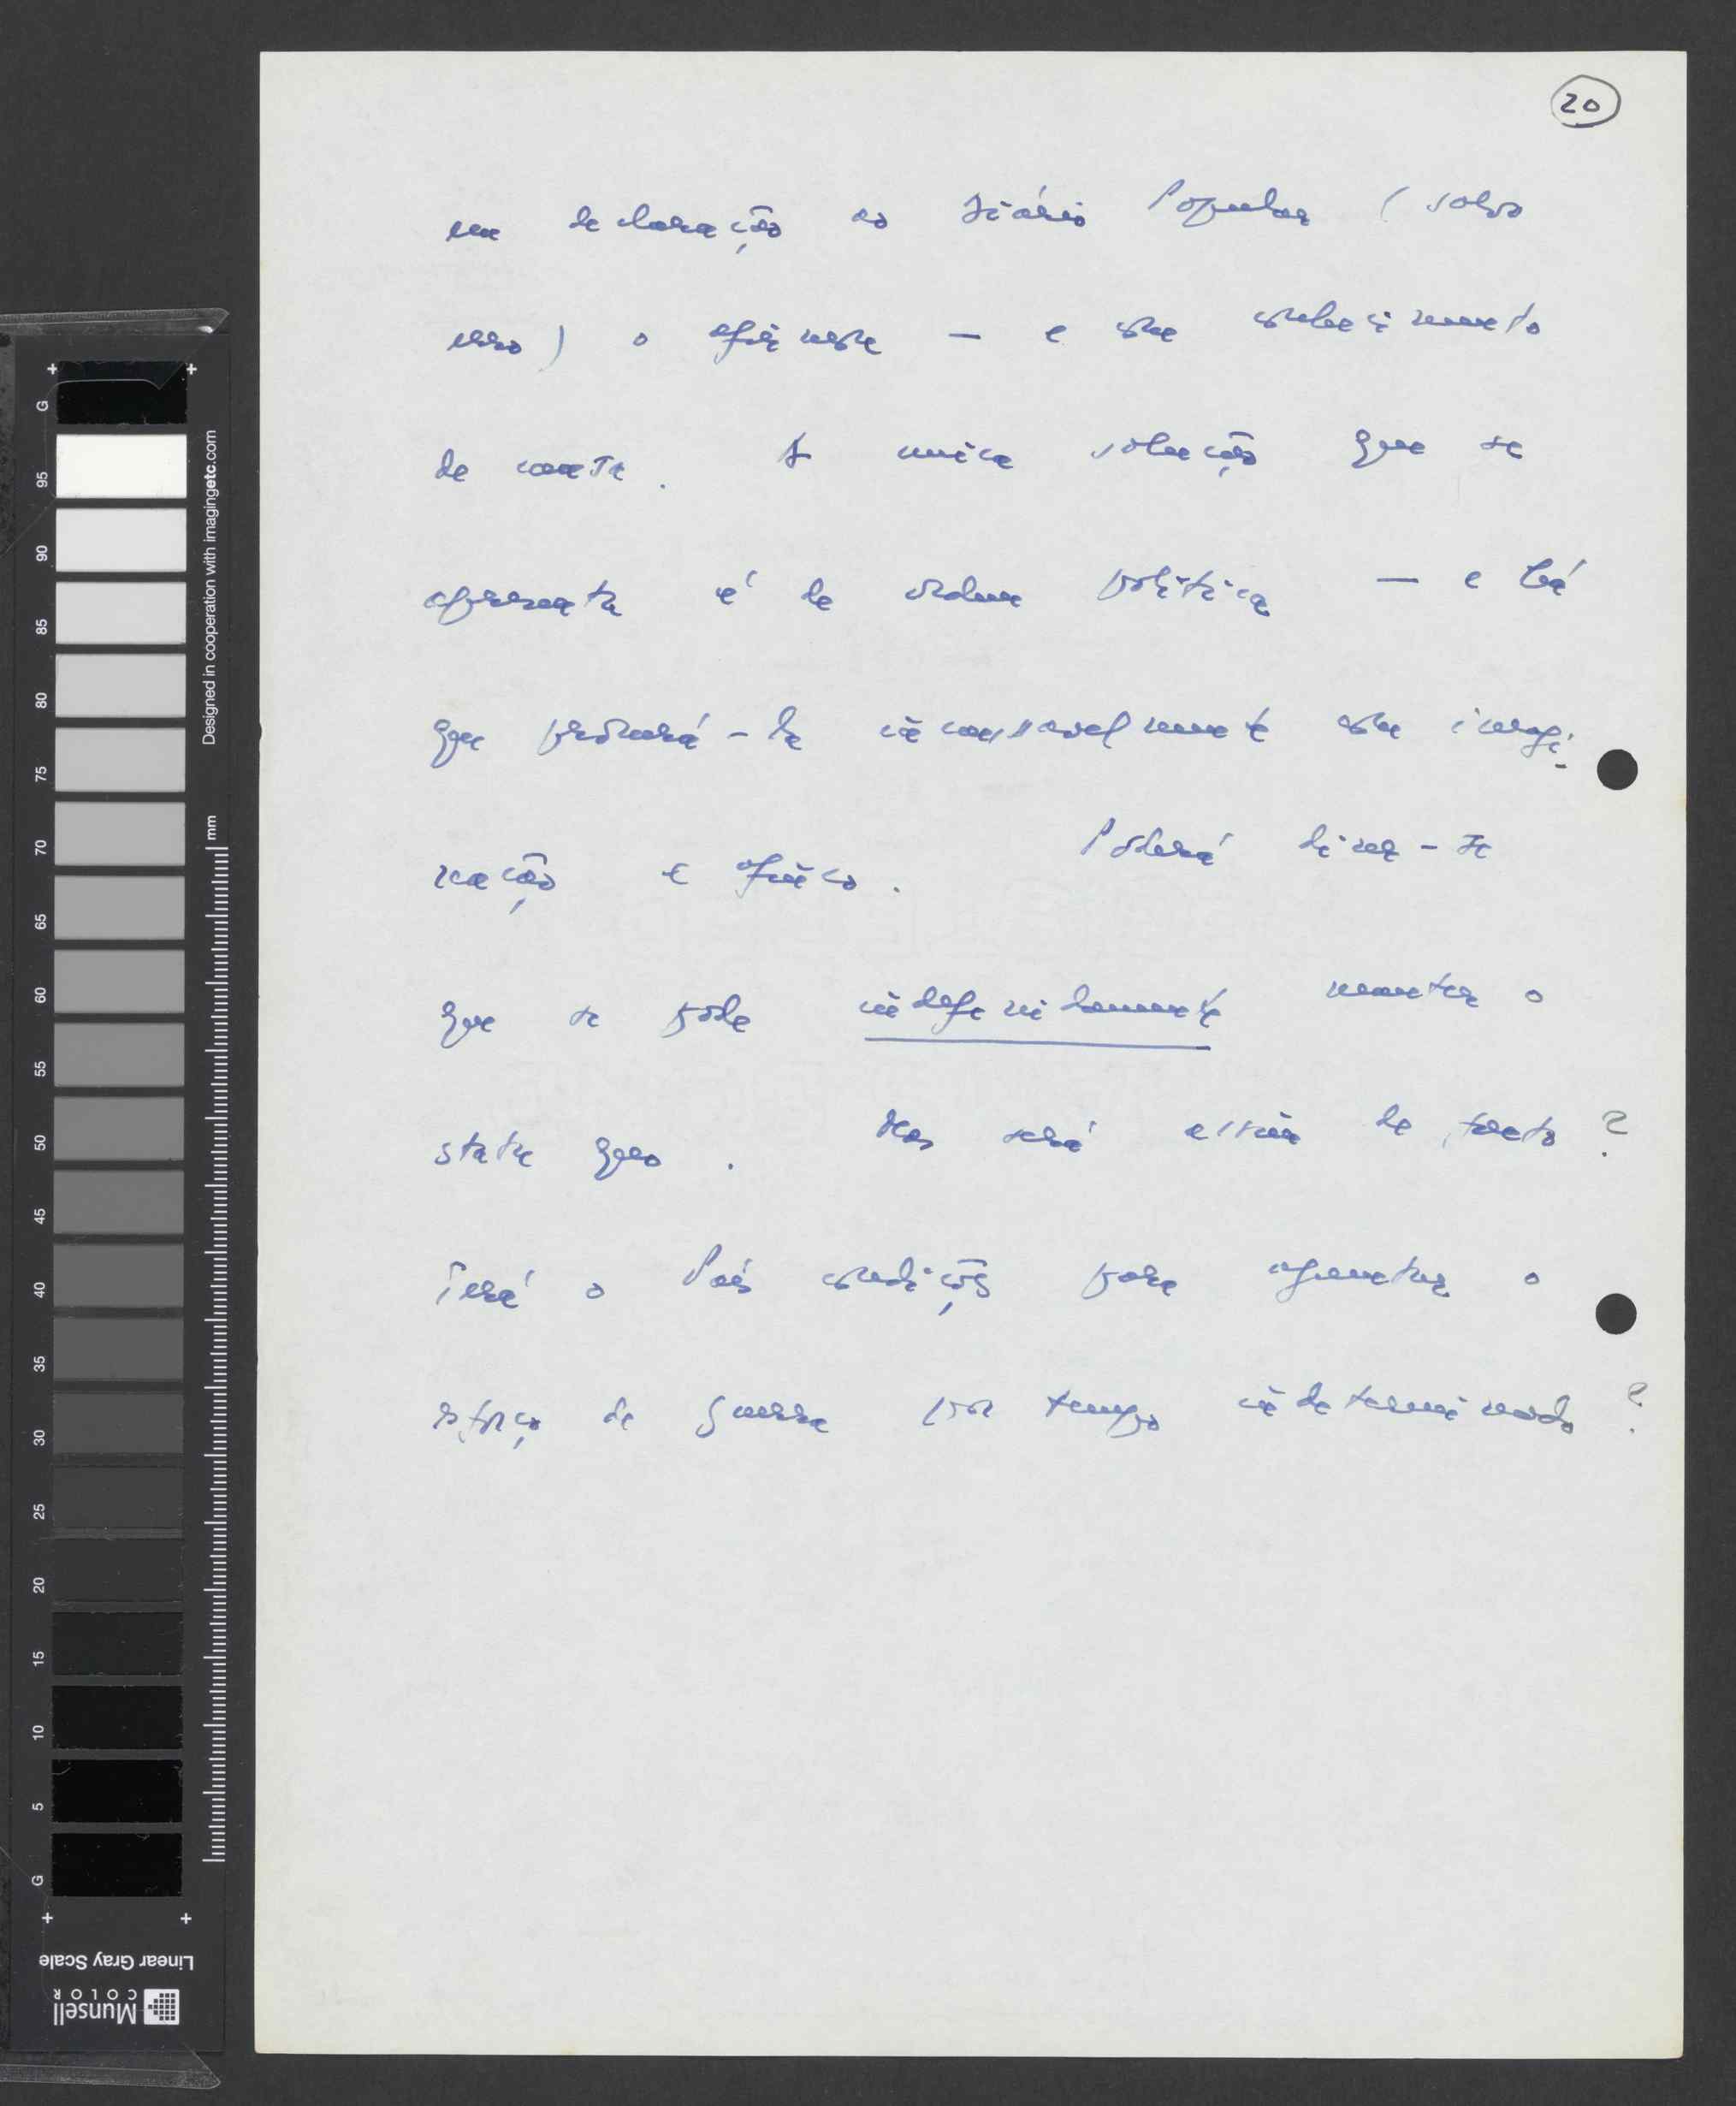 20
em declaração ao Diário Popular (salvo
erro) o afirmava – e com conhecimento
de causa. A única solução que se
apresenta é de ordem política — e há
que procurá-la incansavelmente com imagi-
nação e afinco. Poderá dizer-se
que se pode indefinidamente manter o
statu quo. Mas será assim de facto?
Terá o País condições para aguentar o
esforço de guerra por tempo indeterminado?
+ +
G
95
90
85
80
75
70
65
60
55
50
45
40
35
30
25
20
15
10
5
G
+ +
Designed in cooperation with imagingetc.com
mm
Linear Gray Scale
Munsell
COLOR